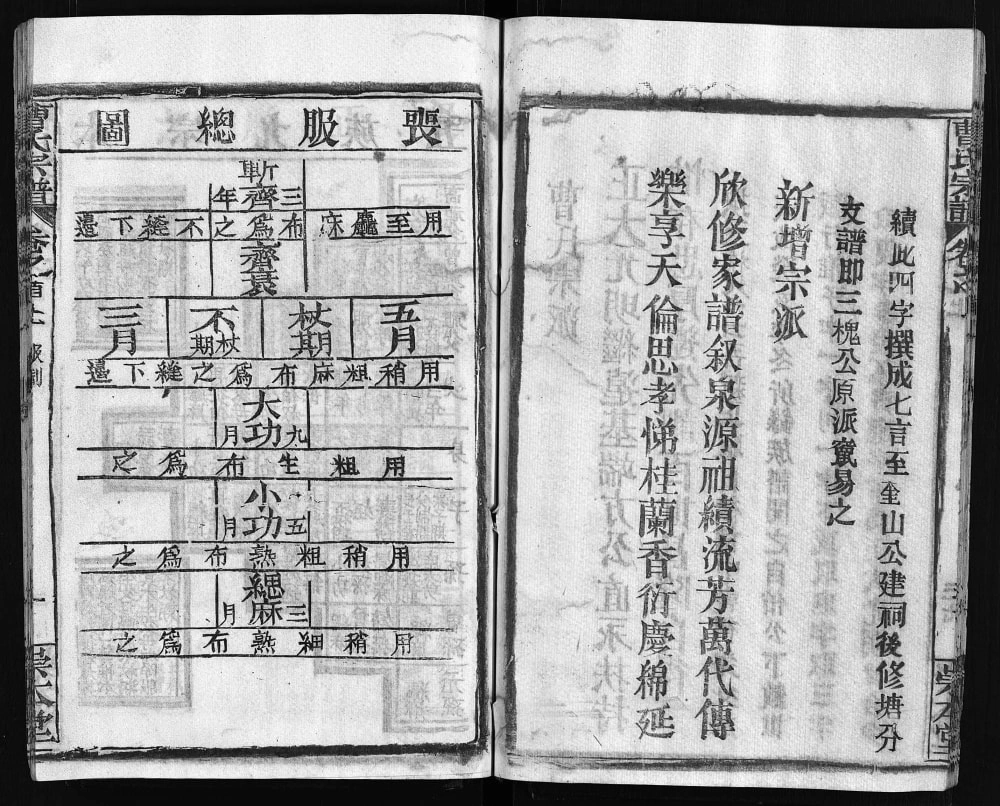 曹氏宗譜
崇本堂
續此四字撰成七言至奎山公建祠後修塘分
支譜即三槐公原派竄易之
新增宗派
欣修家譜叙泉源祖績流芳萬代傳
樂享天倫思孝悌桂蘭香衍慶綿延
喪服總圖
斬
齊三年
用至麤麻布為之不縫下邊
齊衰
五月
杖期
不杖期
三月
用稍粗麻布為之縫下邊
大功九月
用粗生布為之
小功五月
用稍粗熟布為之
緦麻三月
用稍細熟布為之
曹氏宗譜
卷之首上
服制
崇本堂